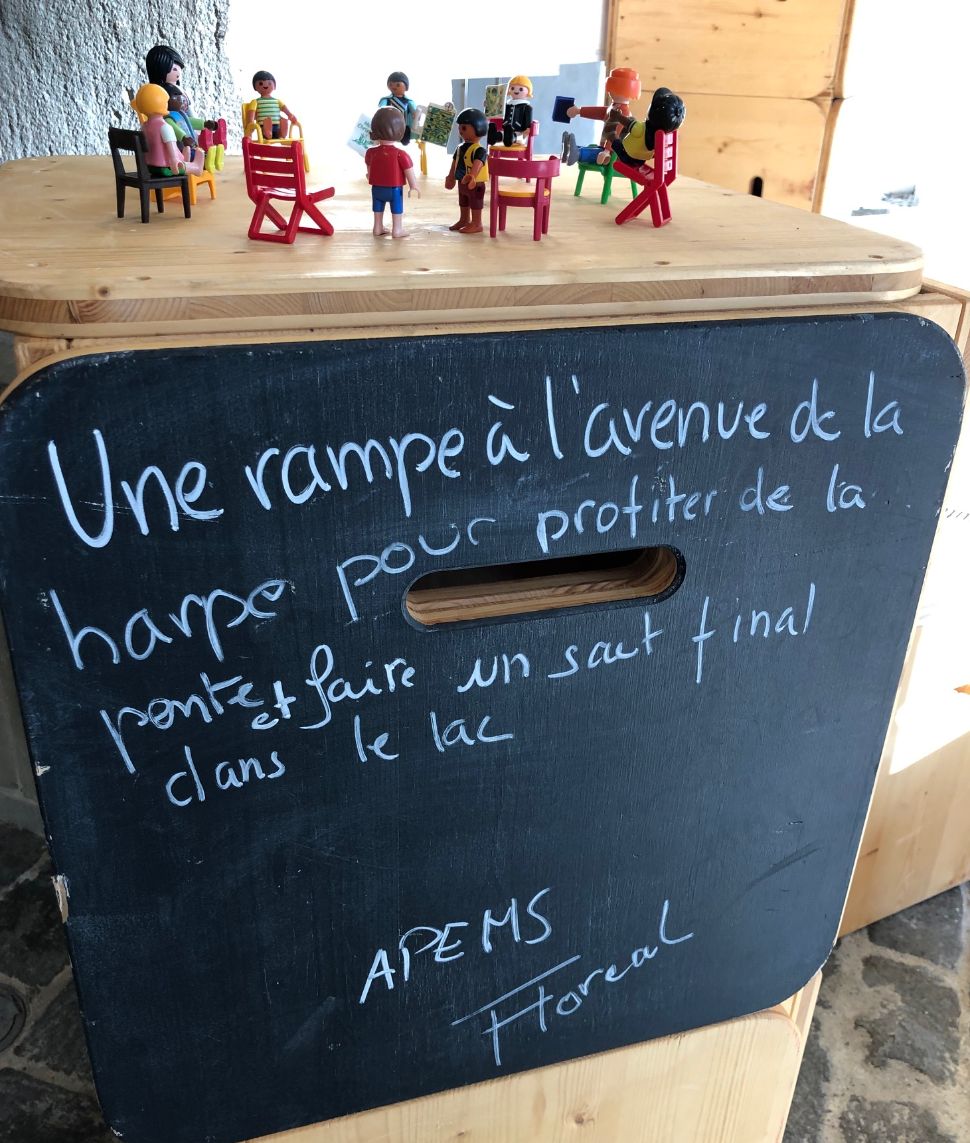 Une rampe à l'avenue de la
harpe pour profiter de la
pente et faire un saut final
dans le lac
APEMS
Floreal